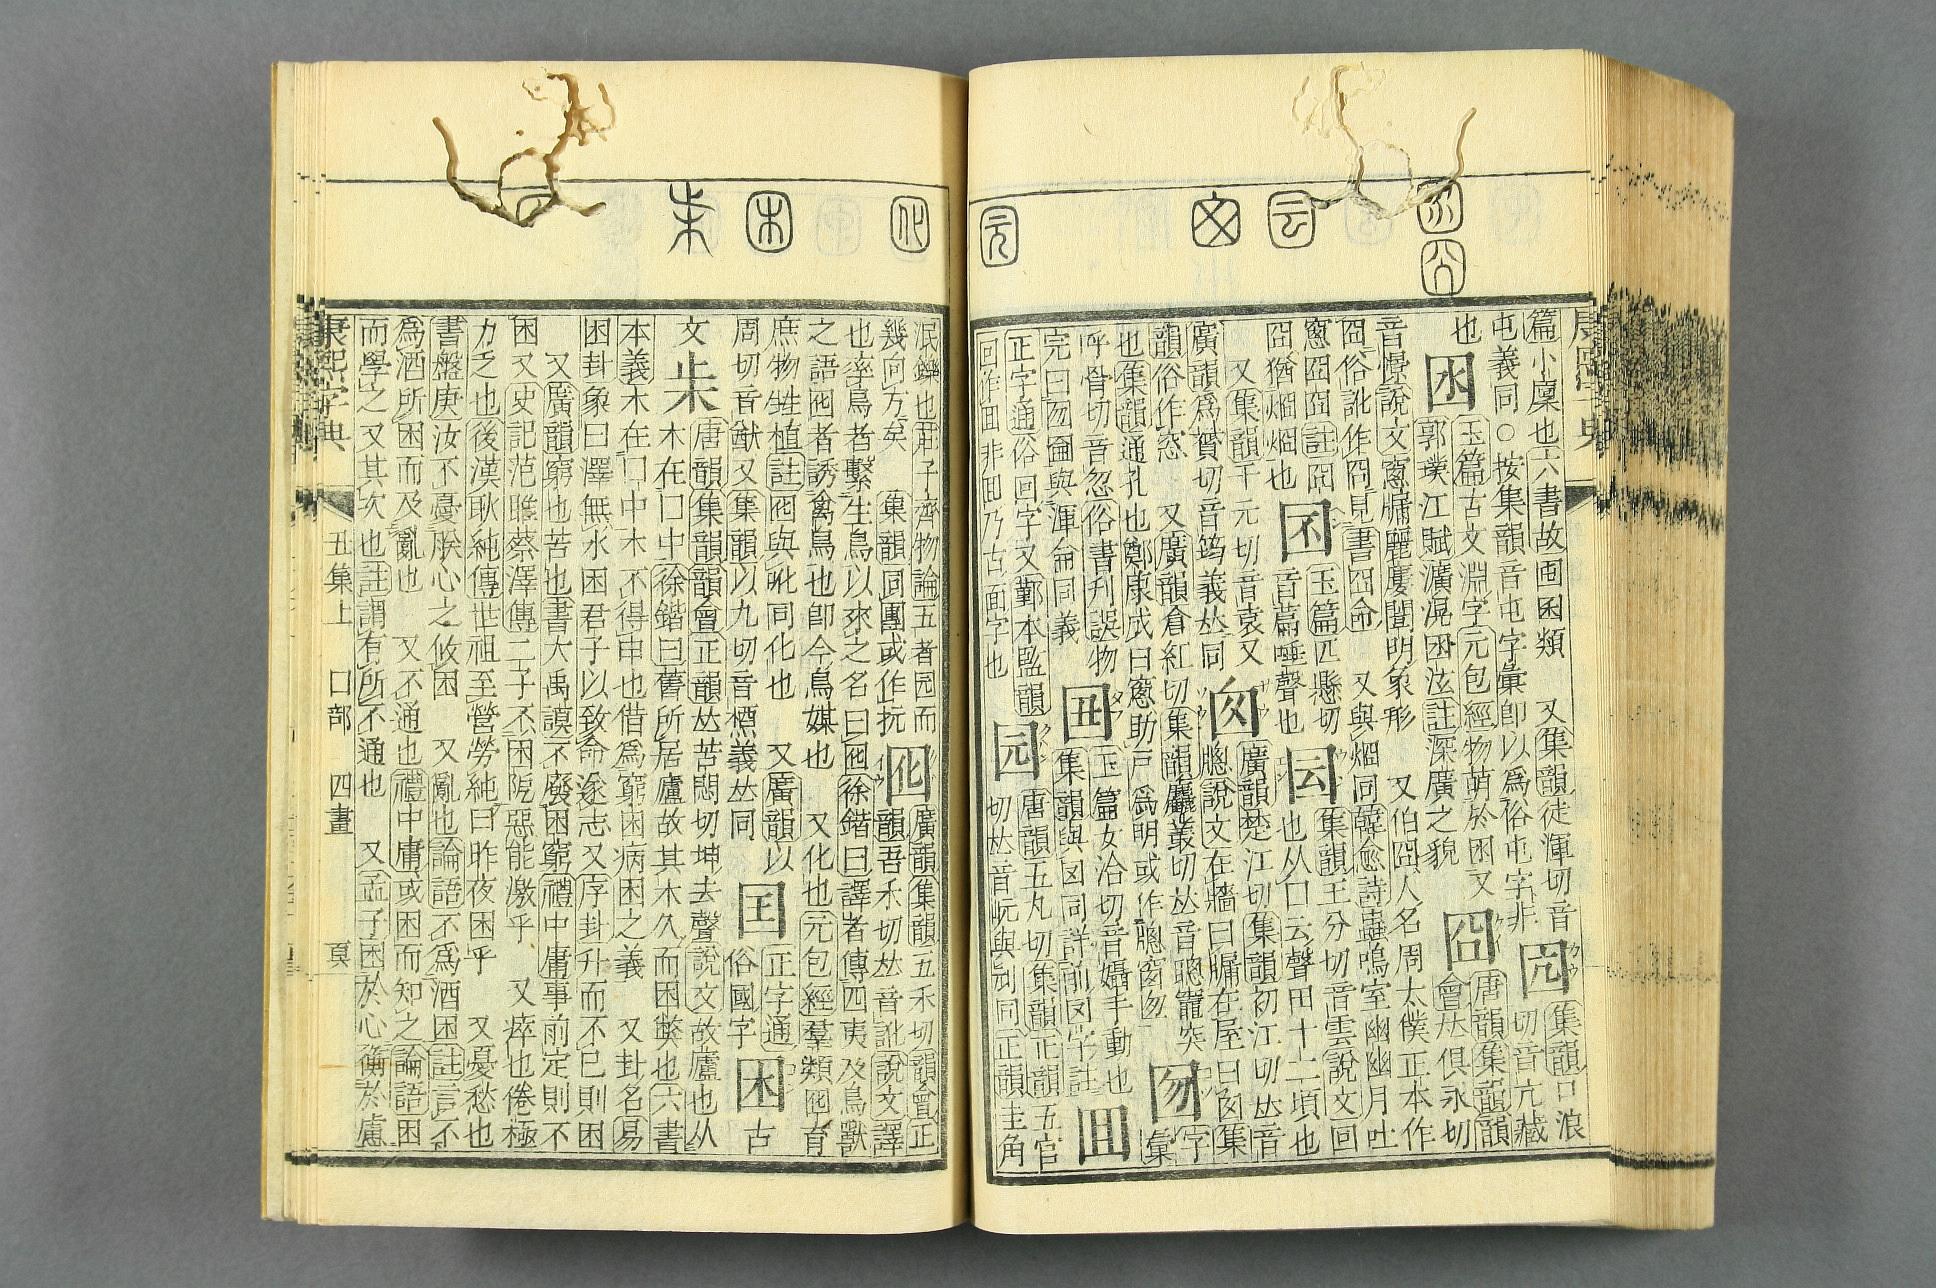 囮
困
朱
㘝
囦
囧
囩
囱
园
康熙字典
篇小廩也六書故囤囷類　又集韻徒渾切音囥集韻口浪
屯義同○按集韻音屯字彙卽以爲俗屯字非切音亢藏
也囦玉篇古文淵字元包經物萌於囦又囧唐韻集韻韻
郭璞江賦瀇滉囦泫註深廣之貌會𠀤俱永切
音憬說文窻牖麗廔闓明象形　又伯囧人名周太僕正本作
囧俗訛作冏見書冏命　又與烱同韓愈詩蟲鳴室幽幽月吐
窻囧囧註囧囨玉篇匹懸切囩集韻王分切音雲說文回
囧猶烱烱也音篇唾聲也也从囗云聲田十二頃也
又集韻于元切音袁又囱廣韻楚江切集韻初江切𠀤音
廣韻爲贇切音筠義𠀤同牕說文在牆曰牖在屋曰囱集
韻俗作窓　又廣韻倉紅切集韻麤叢切𠀤音聰竈突囫字
也集韻通孔也鄭康成曰窻助戸爲明或作牎窗囪彙
呼骨切音忽俗書刋誤物玉篇女洽切手動也囬
完曰囫圇與渾侖同義集韻與同詳前字註
正字通俗回字又鄞本監韻园唐韻五丸切集韻正韻五官
回作囬非囬乃古面字也切𠀤音岏與刓同正韻圭角
泯鑠也莊子齊物論五者园而囮廣韻集韻五禾切韻會正
幾向方矣　集韻同團或作抏韻吾禾切𠀤音訛說文譯
也率鳥者繫生鳥以來之名曰囮徐鍇曰譯者傳四夷及鳥獸
之語囮者誘禽鳥也卽今鳥媒也　又化也元包經羣類囮育
庶物牲植註囮與吪同化也　又廣韻以囯正字通困古
周切音猷又集韻以九切音槱義𠀤同俗國字
文朱唐韻集韻韻會正韻𠀤苦悶切坤去聲說文故廬也从
木在囗中徐鍇曰舊所居廬故其木久而困獘也六書
本義木在囗中木不得申也借爲窮困病困之義　又卦名易
困卦象曰澤無水困君子以致命遂志又序卦升而不已則困
又廣韻窮也苦也書大禹謨不廢困窮禮中庸事前定則不
困又史記范睢蔡澤傳二子不困阨惡能激乎　又瘁也倦極
力乏也後漢耿純傳世祖至營勞純曰昨夜困乎　又憂愁也
書盤庚汝不憂朕心之攸困　又亂也論語不爲酒困註言不
爲酒所困而及亂也　又不通也禮中庸或困而知之論語困
而學之又其次也註謂有所不通也　又孟子困於心衡於慮
康熙字典　丑集上　囗部　四畫　頁